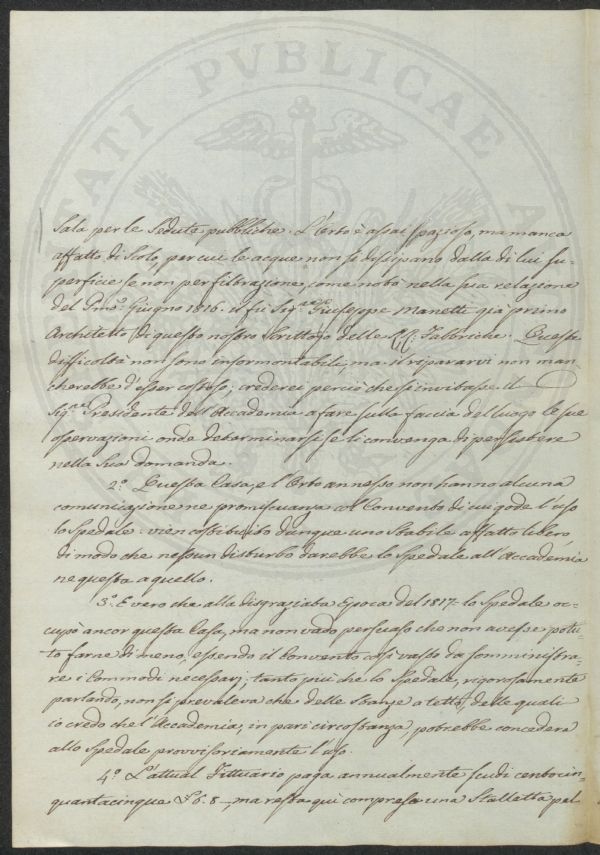 Sala per le Sedute pubbliche. L'Orto è assai spazioso, ma manca
affatto di Scolo, per cui le acque non si dissipano dalla di lui su-
perficie se non per filtrazione, come notò nella sua relazione
del Pmo. Giugno 1816. il fu Sigre. Giuseppe Manetti già primo
Architetto di questo nostro Scrittojo delle RR. Fabbriche. Queste
difficoltà non sono insormontabili, ma il ripararvi non man-
cherebbe d'esser costoso; crederei perciò che si invitasse Il
Sigre. Presidente dell'Accademia a fare sulla faccia del luogo le sue
osservazioni onde determinarsi se li convenga di persistere
nella Sua domanda.
2.o Questa Casa, e l'Orto annesso non hanno alcuna
comunicazione ne promiscuanza col Convento di cui gode l'uso
lo Spedale: vien costituito dunque uno Stabile affatto libero,
di modo che nessun disturbo darebbe lo Spedale all'Accademia
ne questa a quello.
3.o E vero che alla disgraziata Epoca del 1817. lo Spedale oc-
cupò ancor questa Casa, ma non vado persuaso che non avesse potu-
to farne di meno, essendo il Convento così vasto da somministra-
re i Commodi necessarj; tanto più che lo Spedale, rigorosamente
parlando, non si prevaleva che delle Stanze a tetto, delle quali
io credo che l'Accademia, in pari circostanza, potrebbe concedere
allo Spedale provvisoriamente l'uso.
4.o L'attual Fittuario paga annualmente scudi centocin-
quantacinque £ 6. 8 –, ma resta quì compresa una Stalletta pel
PVBLICAE